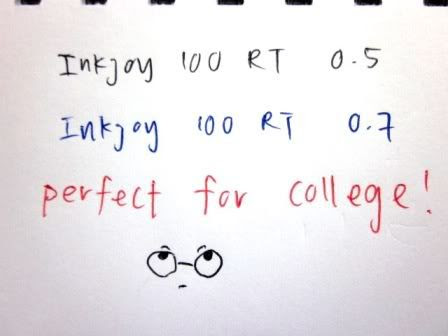 Inkjoy 100 RT 0.5
Inkjoy 100 RT 0.7
perfect for college!